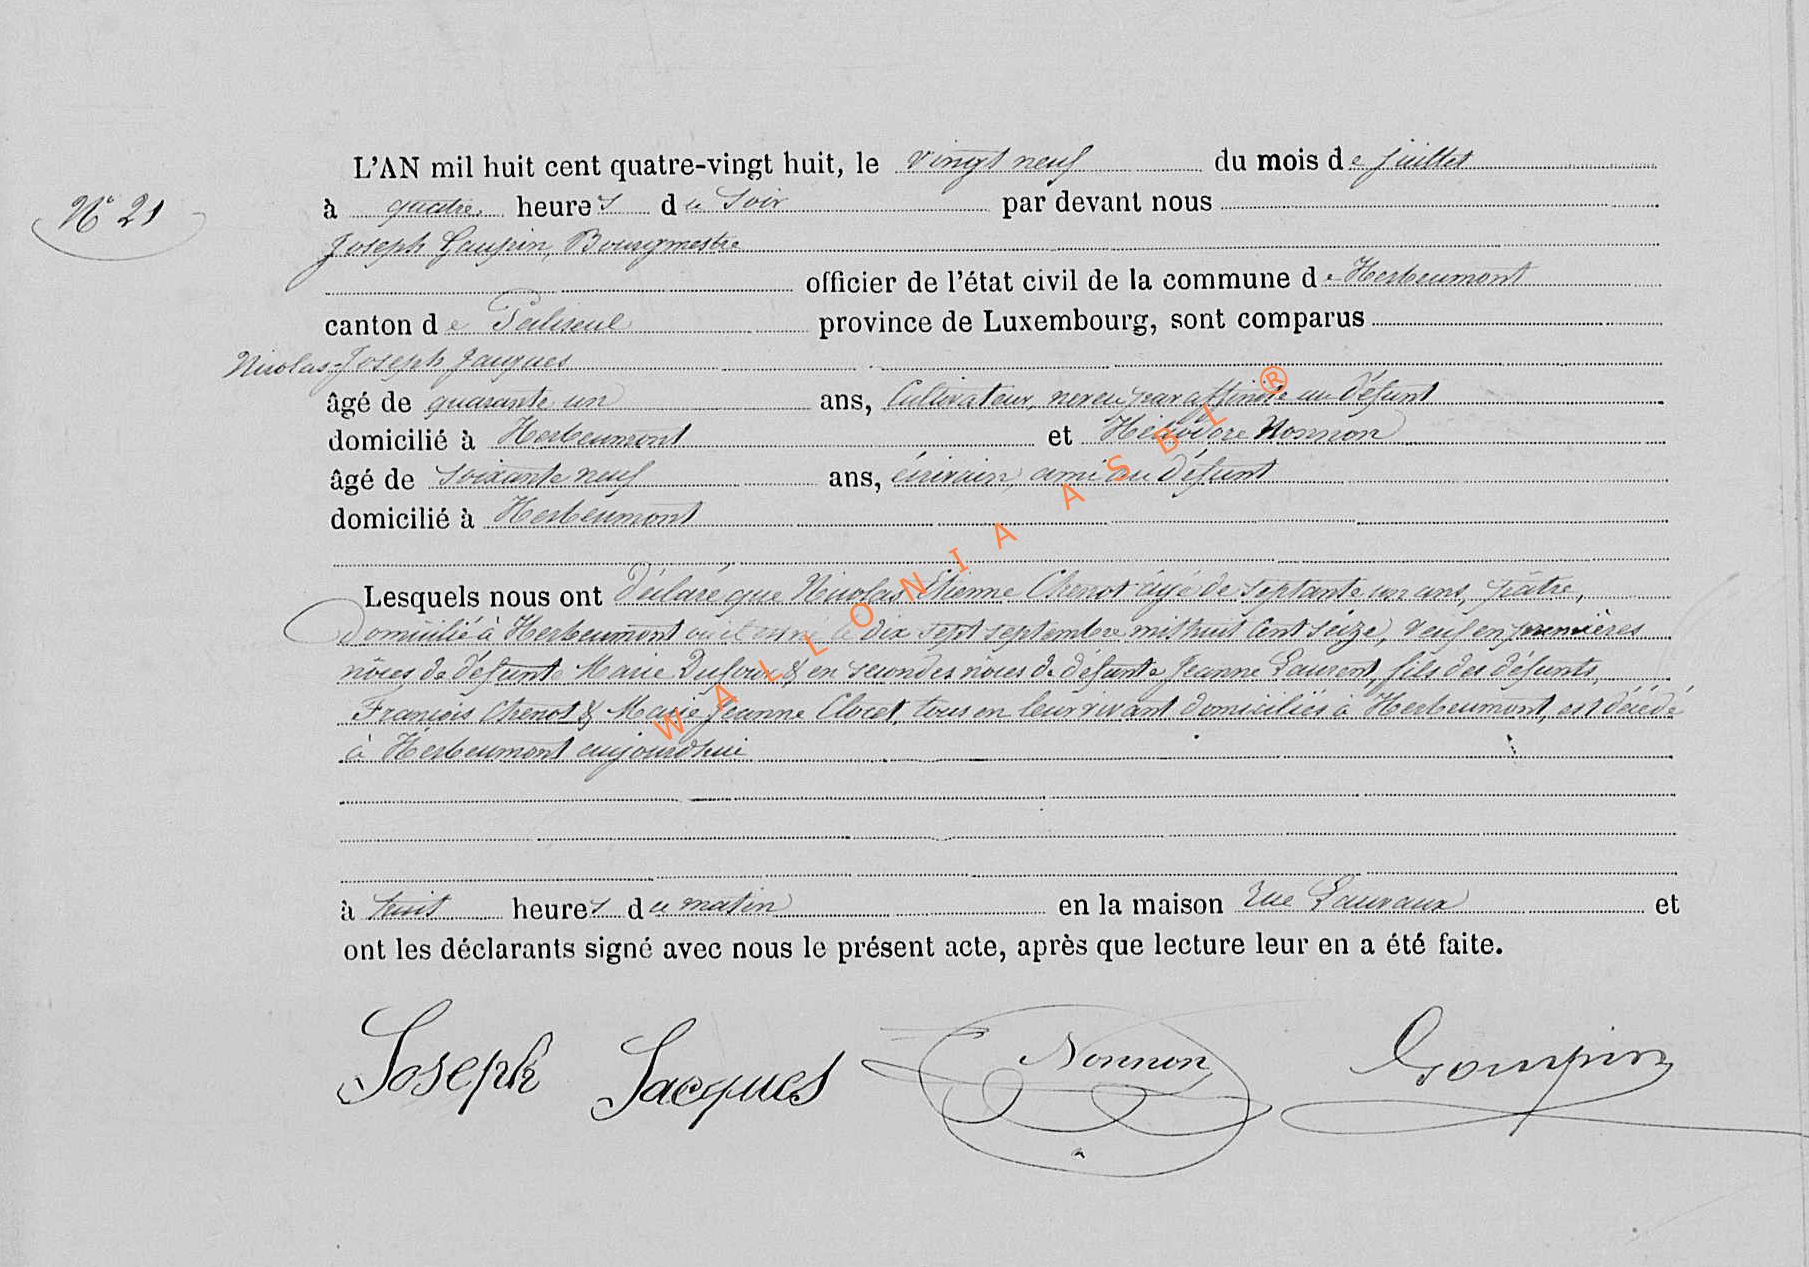 L'AN mil huit cent quatre-vingt huit, le vingt neuf du mois de juillet
N° 21
à quatre heures du soir par devant nous
Joseph Goupin, Bourgmestre
officier de l'état civil de la commune de Herbeumont
canton de Paliseul province de Luxembourg, sont comparus
Nicolas Joseph Jacques
âgé de quarante un ans, Cultivateur, neveu par affinité au défunt
domicilié à Herbeumont et Héliodore Nonnon
âgé de soixante neuf ans, écrivain, ami au défunt
domicilié à Herbeumont
Lesquels nous ont déclaré que Nicolas Etienne Chenot âgé de septante un ans, pâtre,
domicilié à Herbeumont où il est né le dix sept septembre mil huit cent seize, veuf en premières
nôces de défunte Marie Dufour & en secondes nôces de défunte Jeanne Laurent, fils des défunts,
François Chenot & Marie Jeanne Closet, tous en leur vivant domiciliés à Herbeumont, est décédé
à Herbeumont aujourdhui
à huit heures du matin en la maison rue Lauvaux et
ont les déclarants signé avec nous le présent acte, après que lecture leur en a été faite.
Joseph Jacques Nonnon Goupin
WALLONIA ASBL ®